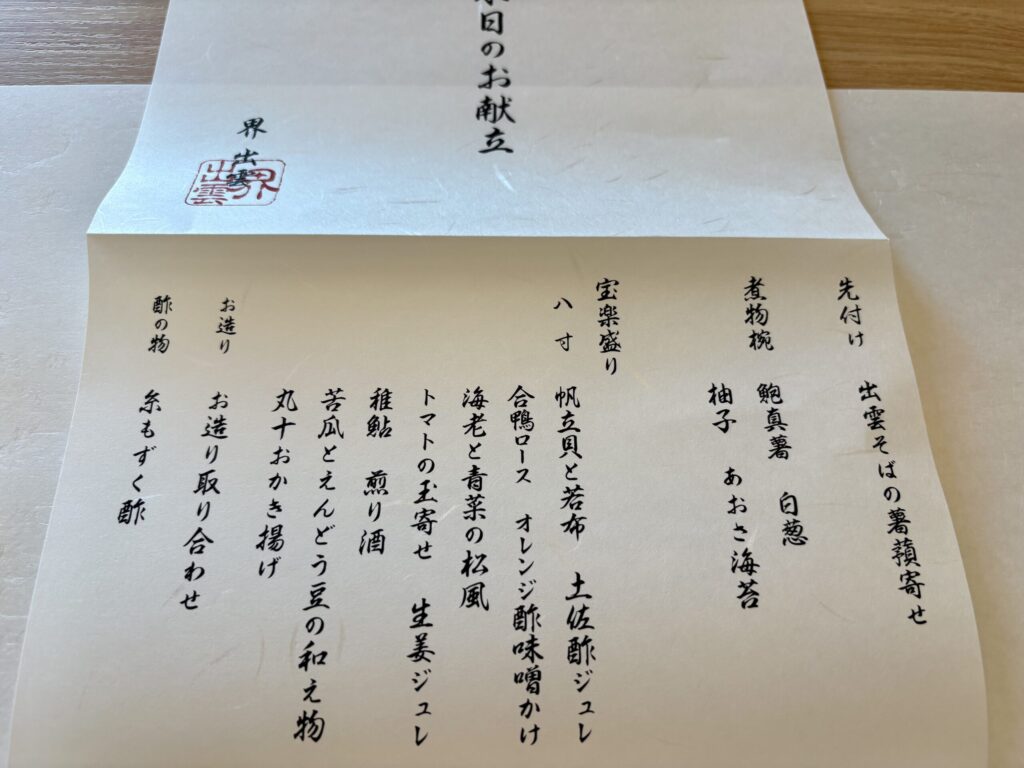 日のお献立
界 出雲
界出雲
先付け
出雲そばの薯蕷寄せ
煮物椀
鮑真薯 白葱
柚子 あおさ海苔
宝楽盛り
八寸
帆立貝と若布 土佐酢ジュレ
合鴨ロース オレンジ酢味噌かけ
海老と青菜の松風
トマトの玉寄せ 生姜ジュレ
稚鮎 煎り酒
苦瓜とえんどう豆の和え物
丸十おかき揚げ
お造り
お造り取り合わせ
酢の物
糸もずく酢